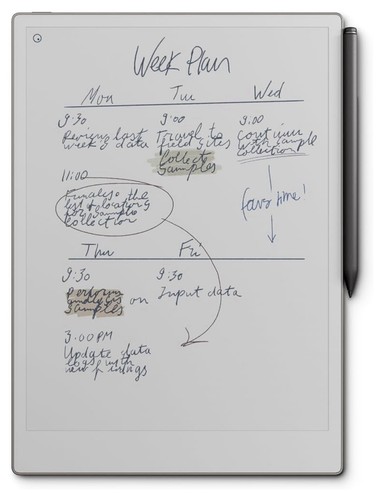 Week Plan
Mon Tue Wed
9:30
Review last
week's data
11:00
Finalise the
list of locations
for sample
collection
9:00
Travel to
field sites
Collect
samples
9:00
Continue
with sample
collection
fav time!
Thu Fri
9:30
Perform
analysis on
samples
3:00PM
Update data
logs with
new findings
9:30
Input data